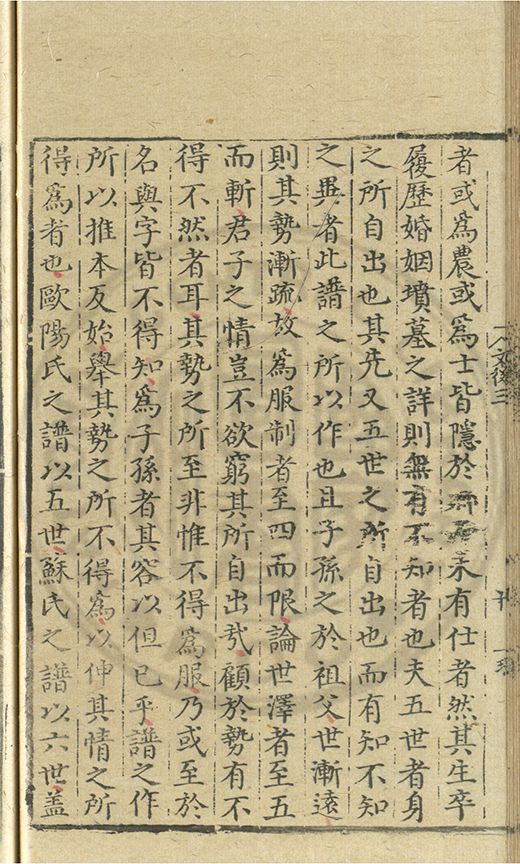 者或爲農或爲士皆隱於 未有仕者然其生卒
履歷婚姻墳墓之詳則無有不知者也夫五世者身
之所自出也其先又五世之所自出也而有知不知
之異者此譜之所以作也且子孫之於祖父世漸遠
則其勢漸疏故爲服制者至四而限論世澤者至五
而斬君子之情豈不欲窮其所自出哉顧於勢有不
得不然者耳其勢之所至非惟不得爲服乃或至於
名與字皆不得知爲子孫者其容以但已乎譜之作
所以推本反始舉其勢之所不得爲以伸其情之所
得爲者也歐陽氏之譜以五世蘇氏之譜以六世盖